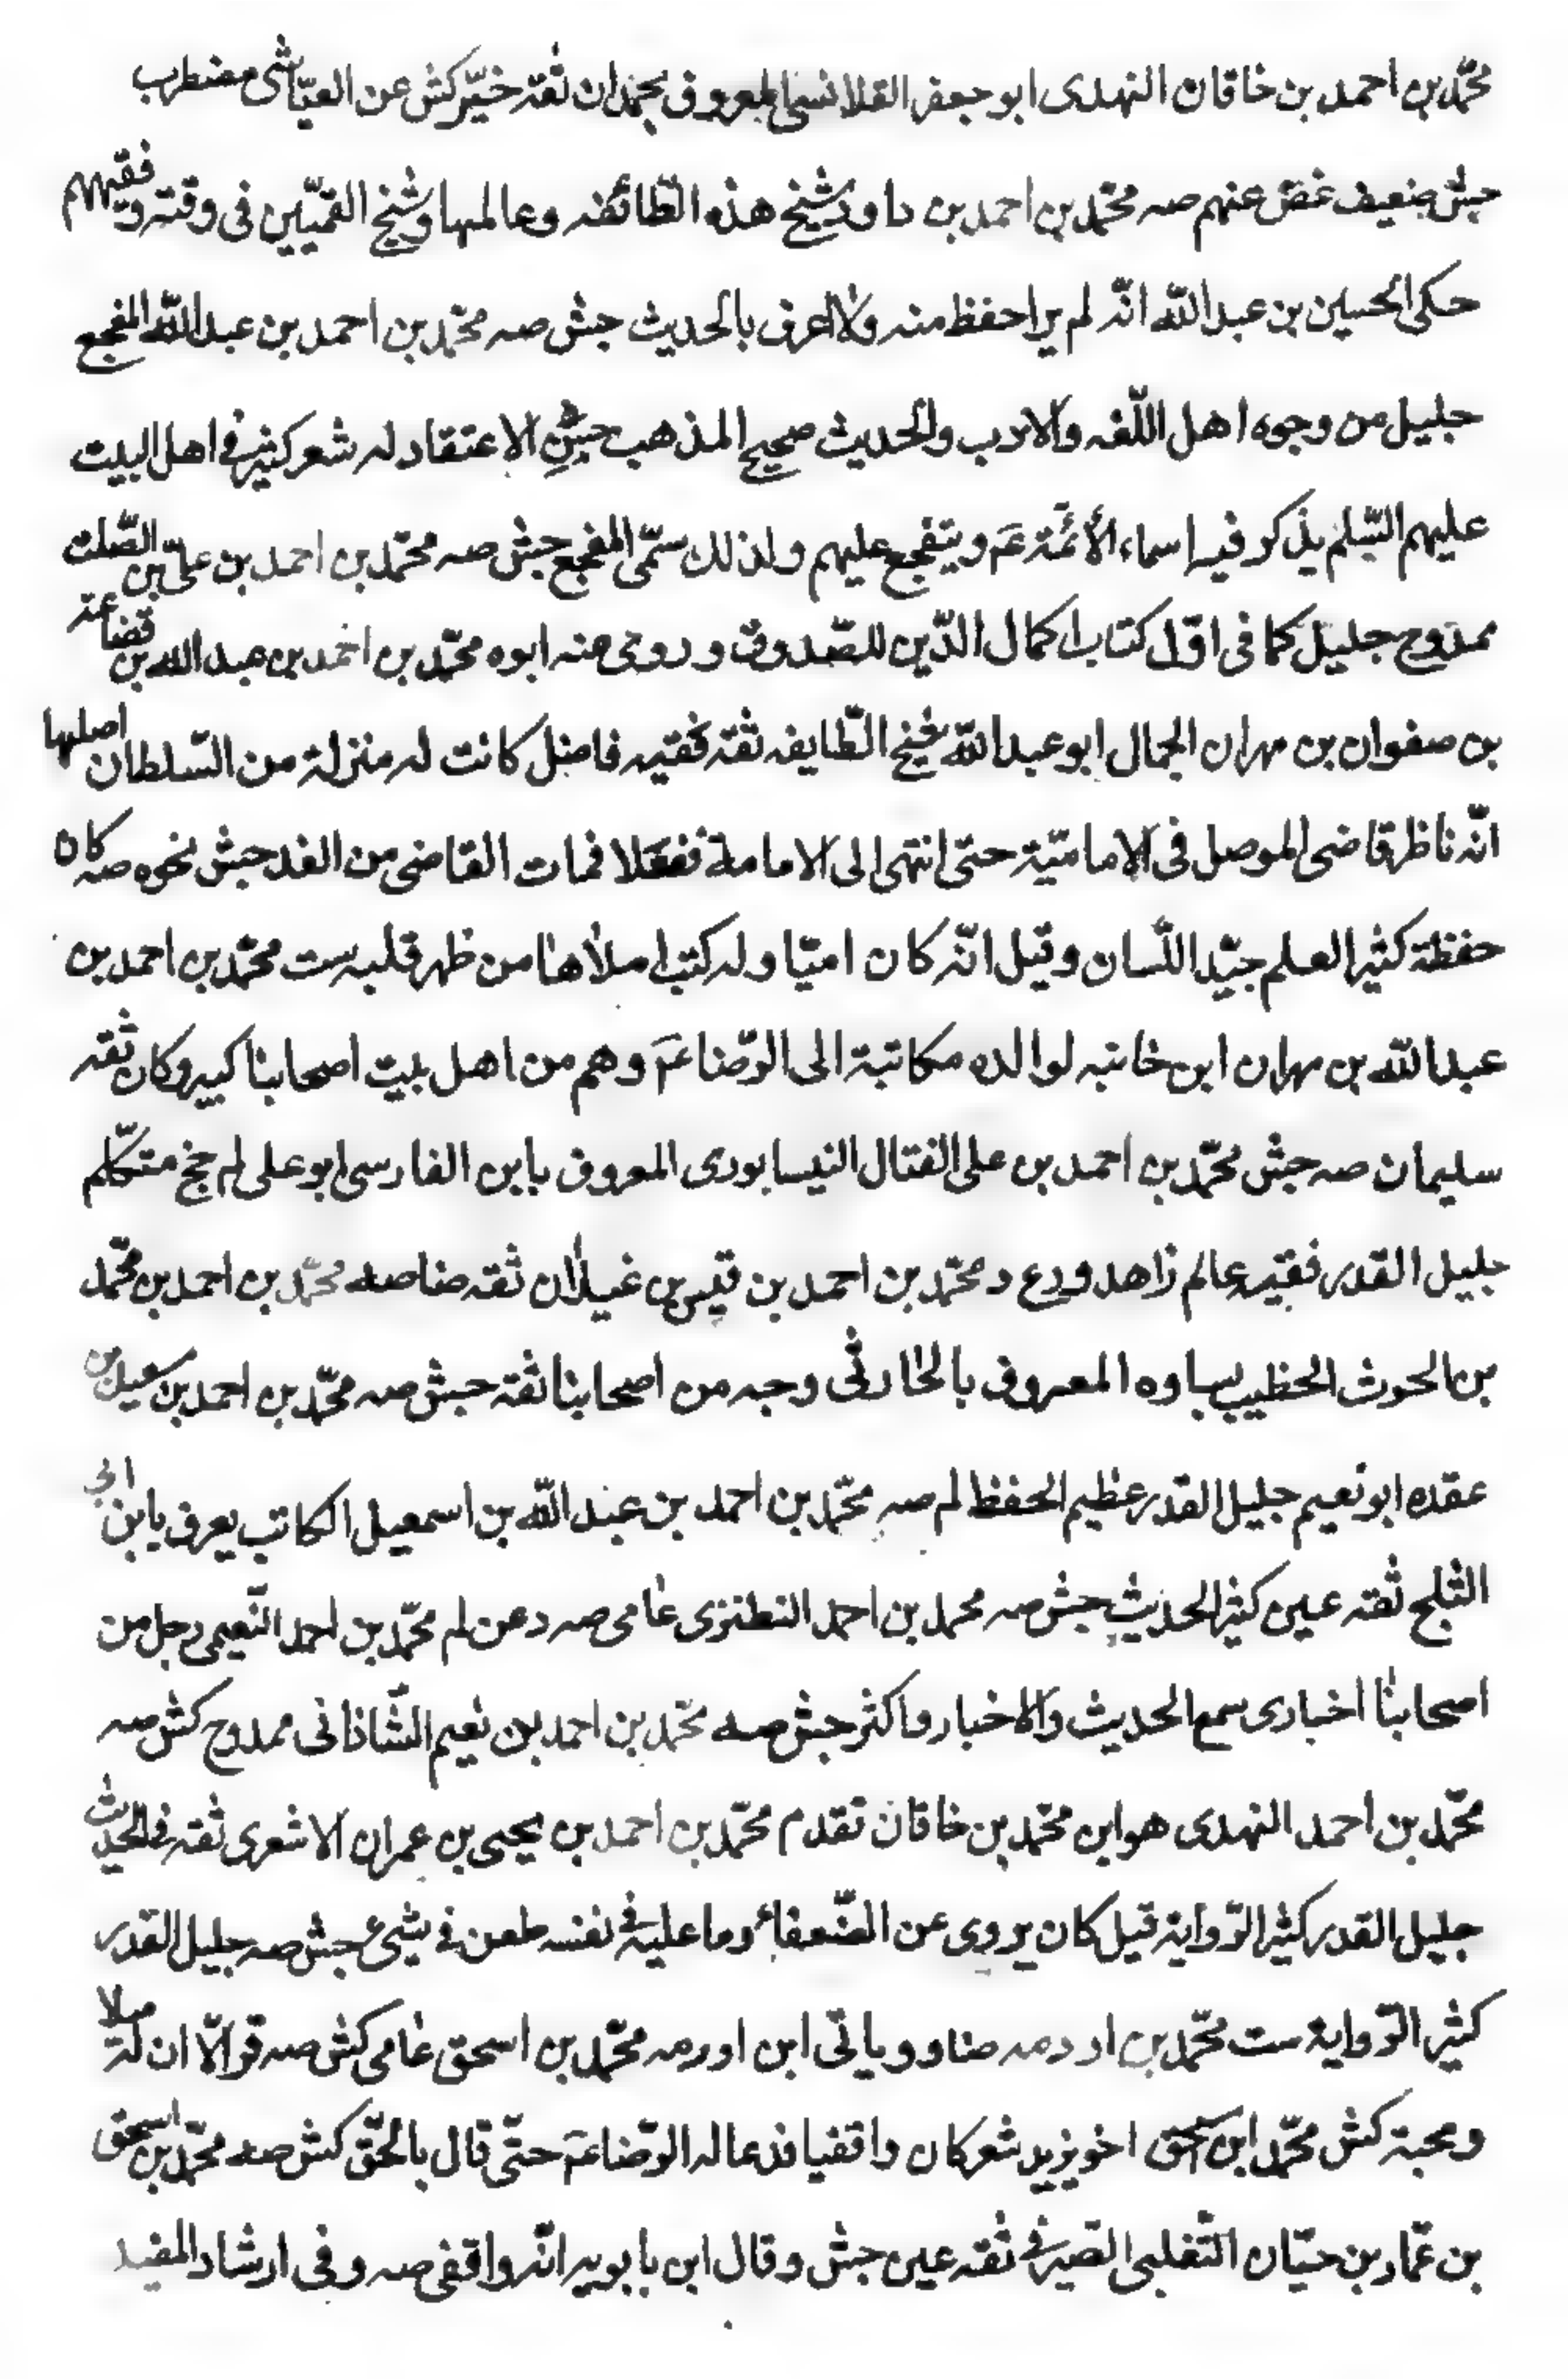 محمّد بن احمد بن خاقان النهدى ابو جعفر القلانسى المعروف بحمدان ثقة خيّر كش عن العيّاشى مضطرب
جش ضعيف غض عنهم صه محمّد بن احمد بن داود شيخ هذه الطّائفه وعالمها وشيخ القميّين فى وقته وفقيههم
حكى الحسين بن عبد الله انّه لم ير احفظ منه ولا اعرف بالحديث جش صه محمّد بن احمد بن عبد الله المفجع
جليل من وجوه اهل اللّغه والادب والحديث صحيح المذهب جش الاعتقاد له شعر كثير فى اهل البيت
عليهم السّلم يذكر فيه اسماء الأئمّة عم ويتفجع عليهم ولذلك سمّى المفجع جش صه محمّد بن احمد بن علىّ بن الصّلت
ممدوح جليل كما فى اوّل كتاب اكمال الدّين للصّدوق وروى عنه ابوه محمّد بن احمد بن عبد الله بن قضاعة
بن صفوان بن مهران الجمال ابو عبد الله شيخ الطّايفه ثقة فقيه فاضل كانت له منزلة من السّلطان اصلها
انّه ناظر قاضى الموصل فى الاماميّة حتى انتهى الى الامامة فمات القاضى من الغد جش نحوه صه كان
حفظة كثير العلم جيّد اللّسان وقيل انّه كان اميّا وله كتب املاها من ظهر قلبه ست محمّد بن احمد بن
عبد الله بن مهران ابن خانبه لوالده مكاتبة الى الرّضا عم وهم من اهل بيت اصحابنا كبير وكان ثقه
سليمان صه جش محمّد بن احمد بن على الفتال النيسابورى المعروف بابن الفارسى ابو على لم جخ متكلّم
جليل القدر فقيه عالم زاهد ورع د محمّد بن احمد بن قيس بن غيلان ثقه ضا صه محمّد بن احمد بن محمّد
بن الحرث الخطيب بساوه المعروف بالحارثى وجه من اصحابنا ثقة جش صه محمّد بن احمد بن سعيد بن
عقده ابو نعيم جليل القدر عظيم الحفظ لم صه محمّد بن احمد بن عبد الله بن اسمعيل الكاتب يعرف بابن ابى
الثلج ثقه عين كثير الحديث جش صه محمد بن احمد النطنزى عامى صه د عن لم محمّد بن احمد النّعيمى رجل من
اصحابنا اخبارى سمع الحديث والاخبار واكثر جش صه محمّد بن احمد بن نعيم الشّاذانى ممدوح كش صه
محمّد بن احمد النهدى هو ابن محمّد بن خاقان تقدم محمّد بن احمد بن يحيى بن عمران الاشعرى ثقه فى الحديث
جليل القدر كثير الرّواية قيل كان يروى عن الضّعفاء وما عليه فى نفسه طعن فى شىء جش صه جليل القدر
كثير الرّواية ست محمّد بن اردمه ضا و وياتى ابن اورمه محمّد بن اسحق عامى كش صه قر الّا ان له ميلا
ومحبة كش محمّد ابن اسحق اخو يزيد شعر كان واقفيا فدعا له الرّضا عم حتّى قال بالحقّ كش صه محمّد بن اسحق
بن عمّار بن حيّان التّغلبى الصّيرفى ثقه عين جش وقال ابن بابويه انّه واقفى صه وفى ارشاد المفيد